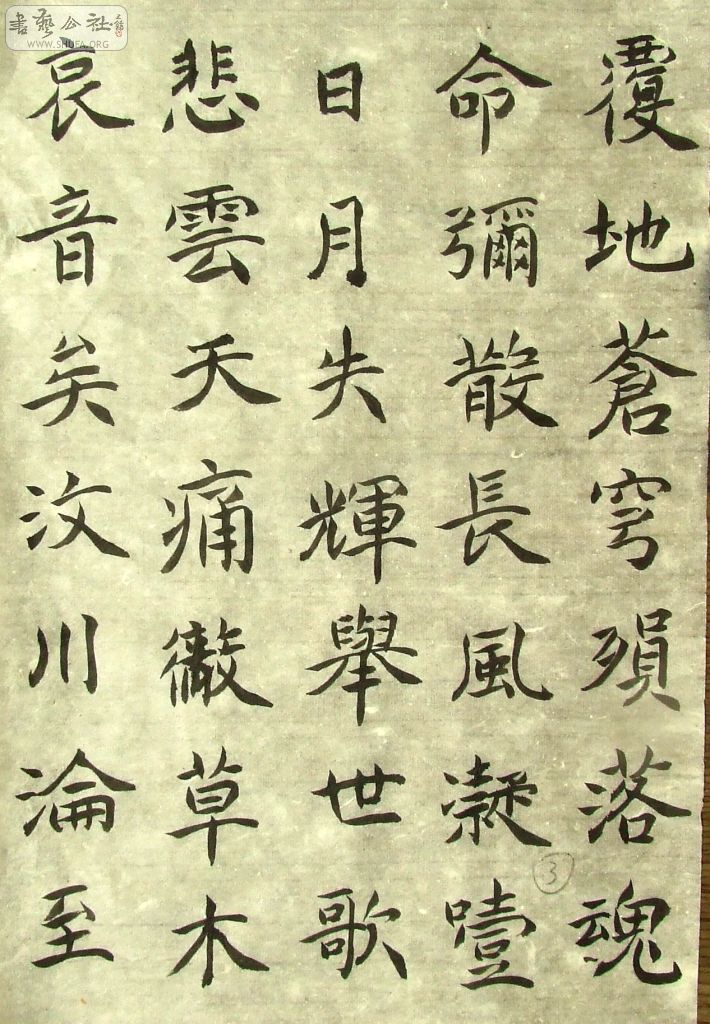 覆地蒼穹殞落魂
命彌散長風凝噎
日月失輝舉世歌
悲雲天痛徹草木
哀音矣汶川淪至
3
書藝公社
WWW.SHUFA.ORG